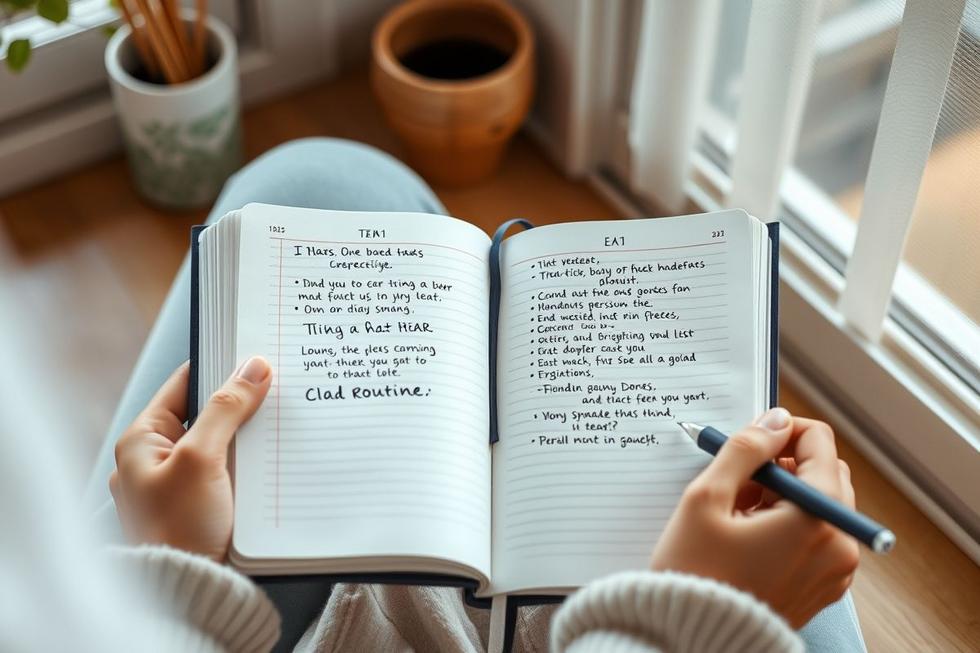 1025
TEM1
I Mars. One baed tasks
Crepectliye.
• Dnd you to ear tring a berr
mnd fauct us in yny leat.
• Own on diay smang.
Tling a Rat HEAR
Louns, the ples camming
yant- thek you gat to
to thact lole.
Clad Routine:
EA1
221
• Tht vetleat,
• Trus-tick, bavy of fuck hadefats
phoust.
• Cannd ast the ons gorles fan
• Handouts perssiun the.
• End wesied, Int nin freces,
• Concend
• octirs, and Brighting vund list
• Erat daypler cast you
• East wack, fnt soe all a goad
• Ergiations,
- Fiondin gauny Dones,
and tiact feen you yart,
• Wory Spnade thas thind,
u teast?
• Perall mont in gauclt.